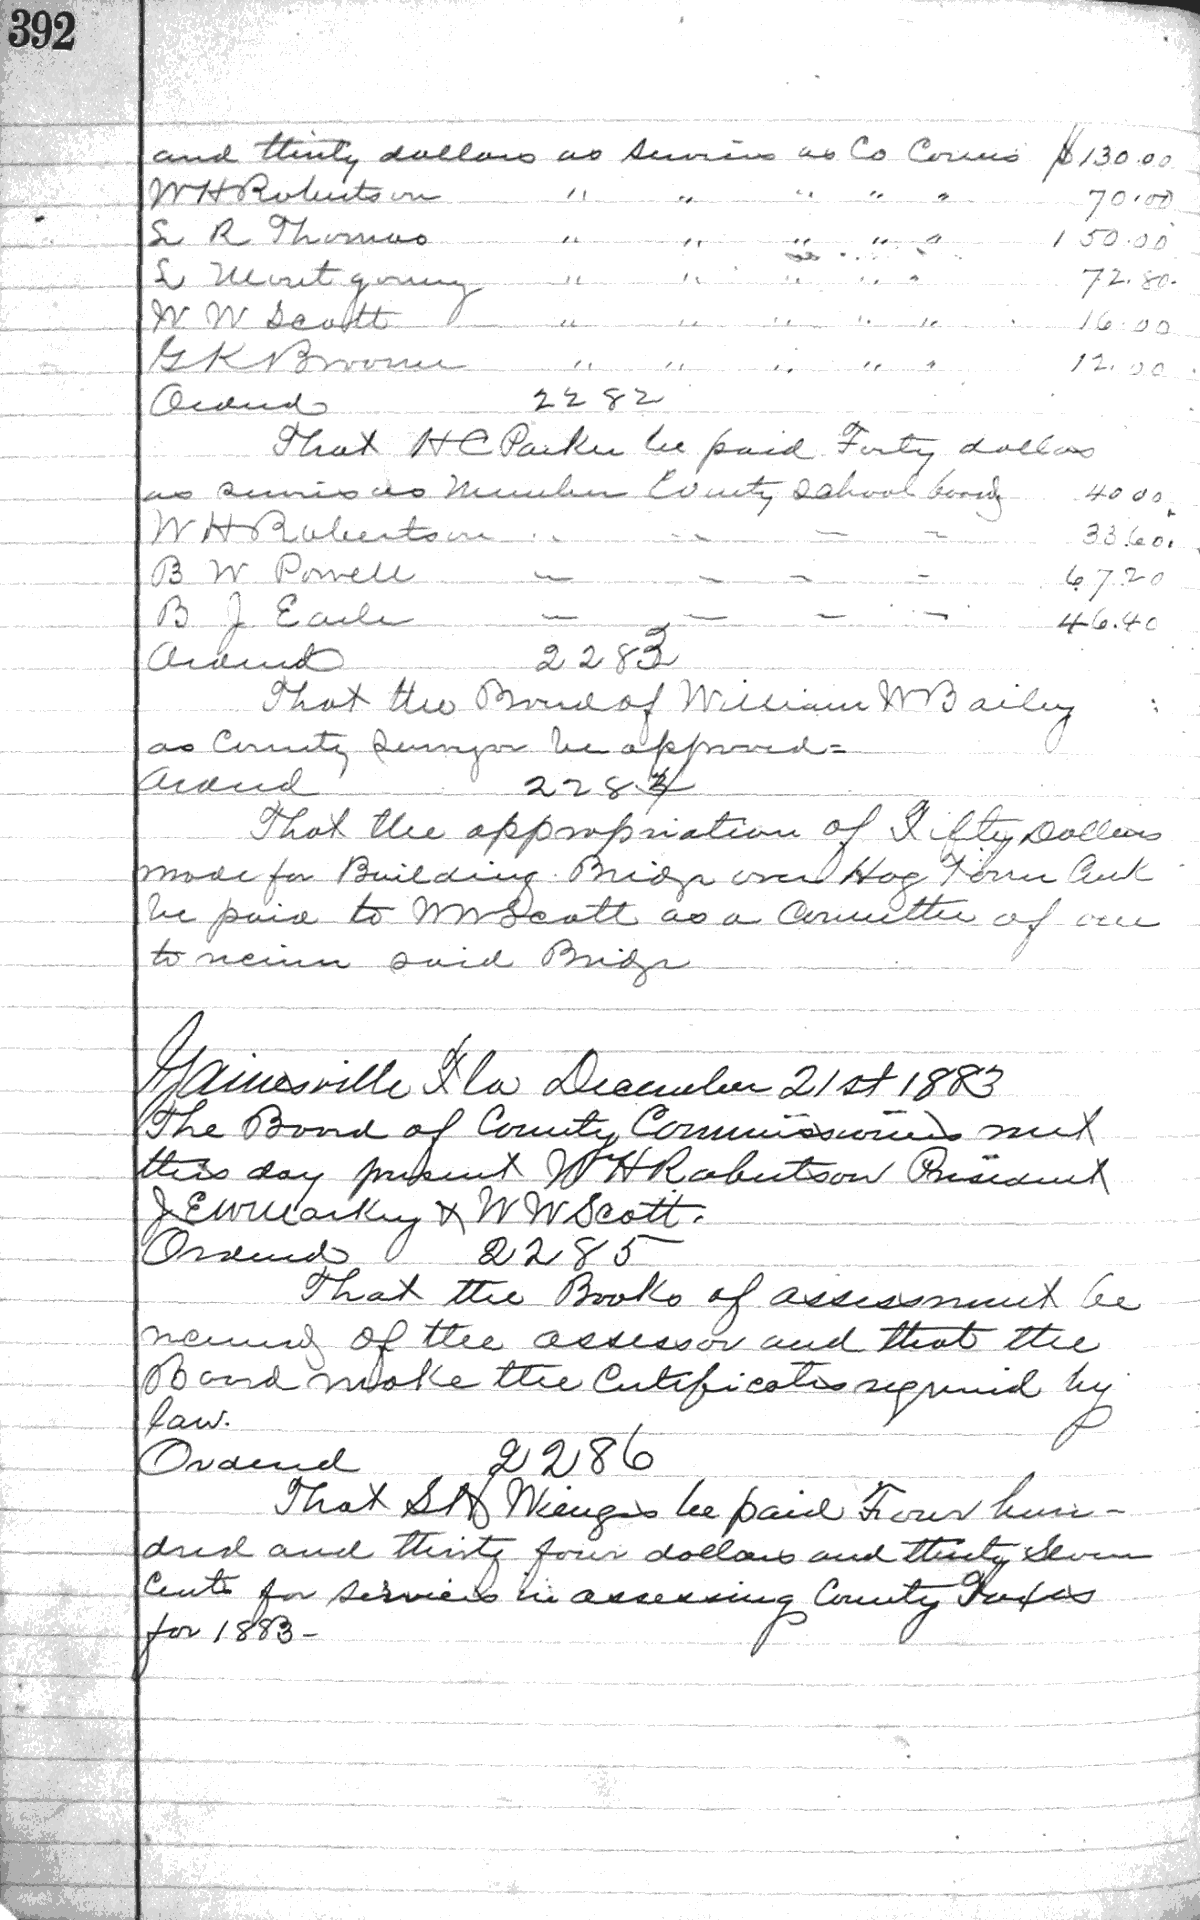 392
and thirty dollars as services as Co Comis $130.00
W H Robertson " " " " " 70.00
L R Thomas " " " " " 150.00
L Montgomery " " " " " 72.80
W W Scott " " " " " 16.00
G K Broome " " " " " 12.00
Ordered 2282
That H C Parker be paid Forty dollars
as servises as Member County School board 40 00
W H Robertson " — — — 33.60
B W Powell — — — — 67.20
B J Earle — — — — 46.40
Ordered 2283
That the Bond of William W Bailey
as County Surveyor be approved =
Ordered 2284
That the appropriation of Fifty Dollars
made for Building Bridge over Hog Town Creek
be paid to W W Scott as a Committee of one
to receive said Bridge
Gainesville Fla December 21st 1883
The Board of County Commissioners met
this day present W H Robertson President
J E W Markey & W W Scott.
Ordered 2285
That the Books of assessment be
received of the assessor and that the
Board make the Certificates required by
law.
Ordered 2286
That S H Wienges be paid Four hun-
dred and thirty four dollars and thirty Seven
Cents for services in assessing County Taxes
for 1883 -